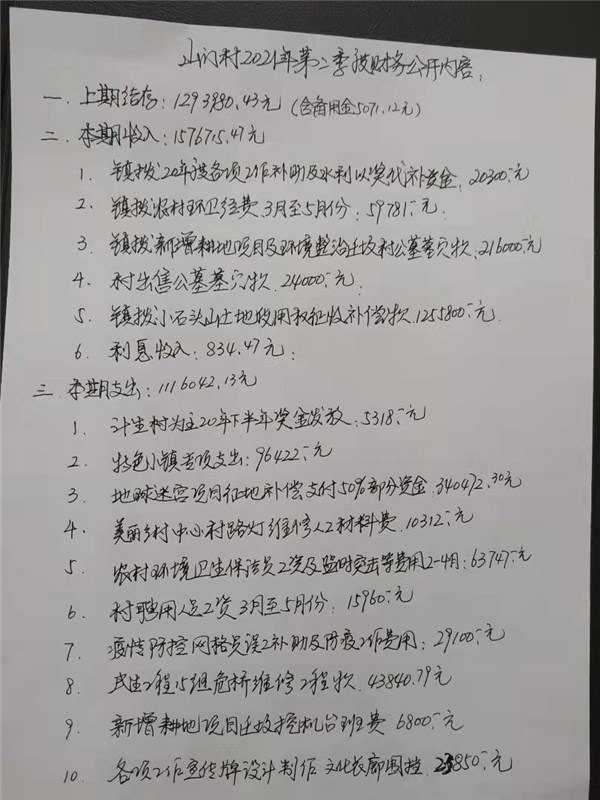 山门村2021年第二季度财务公开内容:
一. 上期结存: 1293980.43元 (含备用金5071.12元)
二. 本期收入: 1576715.47元
1. 镇拨20年度各项工作补助及水利以奖代补资金. 20300元
2. 镇拨农村环卫经费3月至5月份: 59781元.
3. 镇拨新增耕地项目及环境整治迁坟村公墓墓穴款. 216000元
4. 村出售公墓墓穴款. 24000元
5. 镇拨小石头山土地使用权征收补偿款. 1255800元
6. 利息收入: 834.47元:
三. 本期支出: 1116042.13元
1. 计生村为主20年下半年奖金发放: 5318元
2. 特色小镇专项支出: 96422元
3. 地球迷宫项目征地补偿支付50%部分资金. 340472.30元
4. 美丽乡村中心村路灯维修人工材料费. 10312元
5. 农村环境卫生保洁员工资及临时突击等费用2-4月: 63747元
6. 村聘用人员工资3月至5月份: 15960元
7. 疫情防控网格员误工补助及防疫工作费用: 29100元
8. 民生工程15组危桥维修工程款. 43840.79元
9. 新增耕地项目迁坟挖机台班费 6800元
10. 各项工作宣传牌设计制作 文化长廊围挡. 23850元